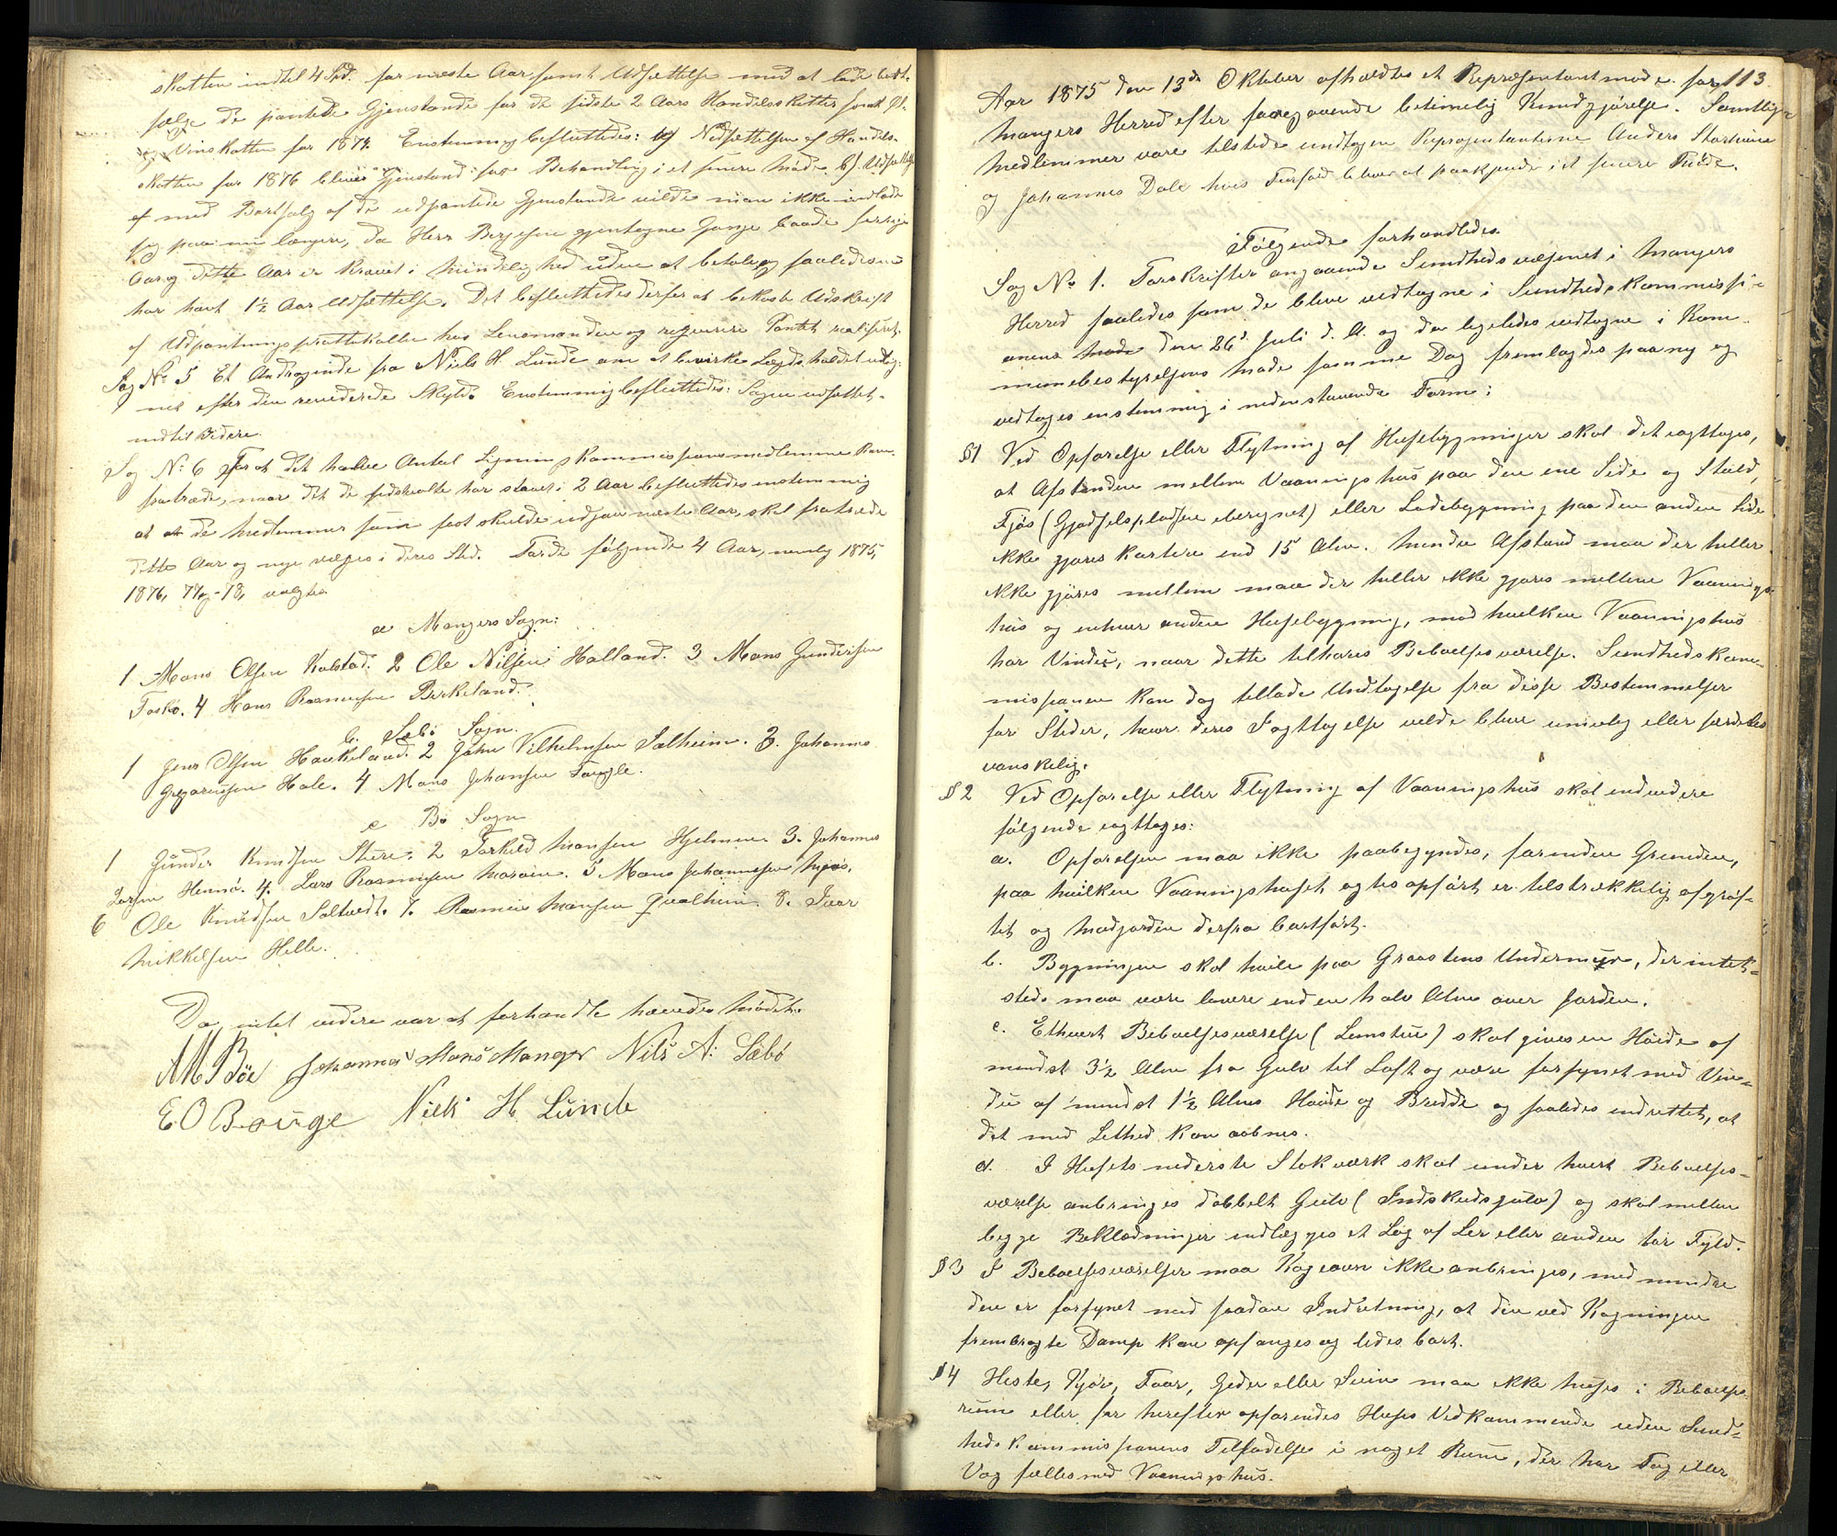 skatten indtil 4 Spd. for næste Aar samt Udsættelse med at lade bort-
sælge de pantede Gjenstande for de sidste 2 Aars Handelsskatter samt Øl-
og Vinskatten for 1874. Enstemmig besluttedes: Nedsættelsen af Handels-
skatten for 1876 bliver Gjenstand for Behandling i et senere Møde. b) Udsættelse
med Bortsalg af de udpantede Gjenstande vilde man ikke indlade
sig paa nu længere, da Herr Berjesen gjentagne Gange baade forrige
Aar og dette Aar er krævet i Mindelighed uden at betale og saaledes
har havt 1½ Aar Udsættelse. Det besluttedes derfor at bekoste Udskrift
af Udpantningsprottekollen hos Lensmanden og Pantet realiseret.
Sag No 5 Et Andragende fra Niels H Lunde om at bevirke Lægdeholdet udlig-
net efter den reviderede Skyld. Enstemmig besluttedes: Sagen udsættes
indtil Videre.
Sag No 6 For at det halve Antal Ligningskommissionsmedlemmer kan
fratræde, naar det de sidstvalte har staaet i 2 Aar besluttedes enstemmig
at de Medlemmer som først skulde udgaa næste Aar, skal fratræde
dette Aar og nye vælges i deres Sted. For de følgende 4 Aar, nemlig 1875,
1876, 77 og -78, valgtes
a Mangers Sogn:
1 Mons Olsen Kolstad. 2 Ole Nilsen Halland. 3 Mons Gundersen
Toskø. 4 Hans Rasmusen Birkeland.
b. Sæbø Sogn.
1 Jens Olsen Haukeland. 2 John Vilhelmsen Solheim. 3. Johannes
Gregoriussen Hole. 4 Mons Johansen Taugle.
c Bø Sogn
1 Gunder Knudsen Sture. 2 Torkild Monsen Hjelmen. 3. Johannes
Larsen Hennø. 4. Lars Rasmusen Marøen. 5 Mons Johannessen Njøs.
6 Ole Knudsen Soltvedt. 7. Rasmus Monsen Qvalheim. 8. Ivar
Mikkelsen Helle.
Da intet videre var at forhandle hævedes Mødet.
AM Bøe Johannes Monss Manger Nils A: Sæbø
E O Bauge Niels H Lunde
113
Aar 1875 den 13de Oktober afholdtes et Repræsentantmøde for
Mangers Herred efter foregaaende betimelig Kundgjørelse. Samtlige
Medlemmer vare tilstede undtagen Repræsentanterne Anders Storheim
og Johannes Dale hvis Forfald bliver at paakjende i et senere Møde.
Følgende forhandledes
Sag No 1. Forskrifter angaaende Sundhedsvæsenet i Mangers
Herred saaledes som de bleve vedtagne i Sundhedskommissi-
onens Møde den 26de Juli d. A. og da ligeledes vedtagne i Kom-
munebestyrelsens Møde samme Dag fremlagdes paany og
vedtoges enstemmig i nedenstaaende Form:
§1 Ved Opførelse eller Flytning af Husebygninger skal det iagttages,
at Afstanden mellem Vaaningshus paa den ene Side og Stald,
Fjøs (Gjødselspladsen iberegnet) eller Ladebygning paa den anden Side
ikke gjøres kortere end 15 Alen. Mindre Afstand maa der heller
ikke gjøres mellem maa der heller ikke gjøres mellem Vaanings-
hus og enhver anden Husebygning, mod hvilken Vaaningshus
har Vindu, naar dette tilhører Beboelsesværelse. Sundhedskom-
missionen kan dog tillade Undtagelse fra disse Bestemmelser
for Steder, hvor deres Iagttagelse vilde blive umulig eller særdeles
vanskelig.
§2 Ved Opførelse eller Flytning af Vaaningshus skal endvidere
følgende iagttages:
a. Opførelsen maa ikke paabegyndes, førinden Grunden,
paa hvilken Vaaningshuset agtes opført er tilstrækkelig afgrøf-
tet og Madjorden derfra bortført.
b. Bygningen skal hvile paa Graastens Undermur, der intet-
steds maa være lavere end en halv Alen over Jorden.
c. Ethvert Beboelsesværelse (Lemstue) skal gives en Høide af
mindst 3½ Alen fra Gulv til Loft og være forsynet med Vin-
du af mindst 1½ Alens Høide og Bredde og saaledes indrettet, at
det med Lethed kan aabnes.
d. I Husets nederste Stokværk skal under hvert Beboelses-
værelse anbringes dobbelt Gulv (Indskudsgulv) og skal mellem
begge Beklædninger indlægges et Lag af Ler eller anden tør Fyld.
§3 I Beboelsesværelser maa Kogeovn ikke anbringes, med mindre
den er forsynet med saadan Indretning, at den ved Kogningen
frembragte Damp kan opfanges og ledes bort.
§4 Heste, Kjør, Faar, Geder eller Svin maa ikke huses i Beboelses-
rum eller for herefter opførendes Huses Vedkommende uden Sund-
hedskommissionens Tilladelse i noget Rum, der har Tag eller
Væg fælles med Vaaningshus.